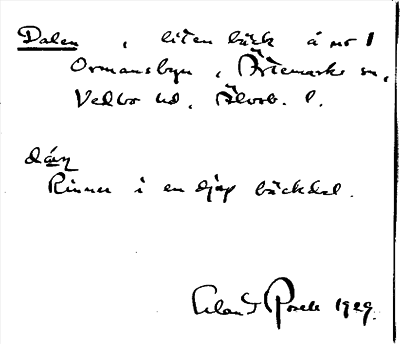 Dalen, liten bäck å nr 1
Ormansbyn, Ärtemarks sn,
Vedbo hd, Älvsb. l.
dán
Rinner i en djup bäckdal.
Erland Rosell 1929.